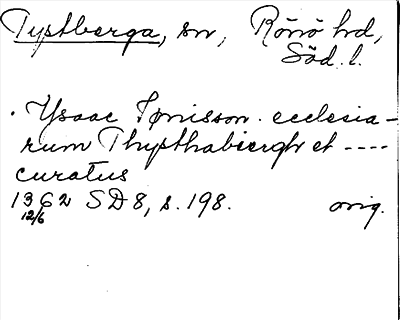 Tystberga, sn, Rönö hd,
Söd. l.
· Ysaac Tønisson · ecclesia-
rum Thypthabiergh et ----
curatus
1362 SD 8, s. 198. orig.
12/6